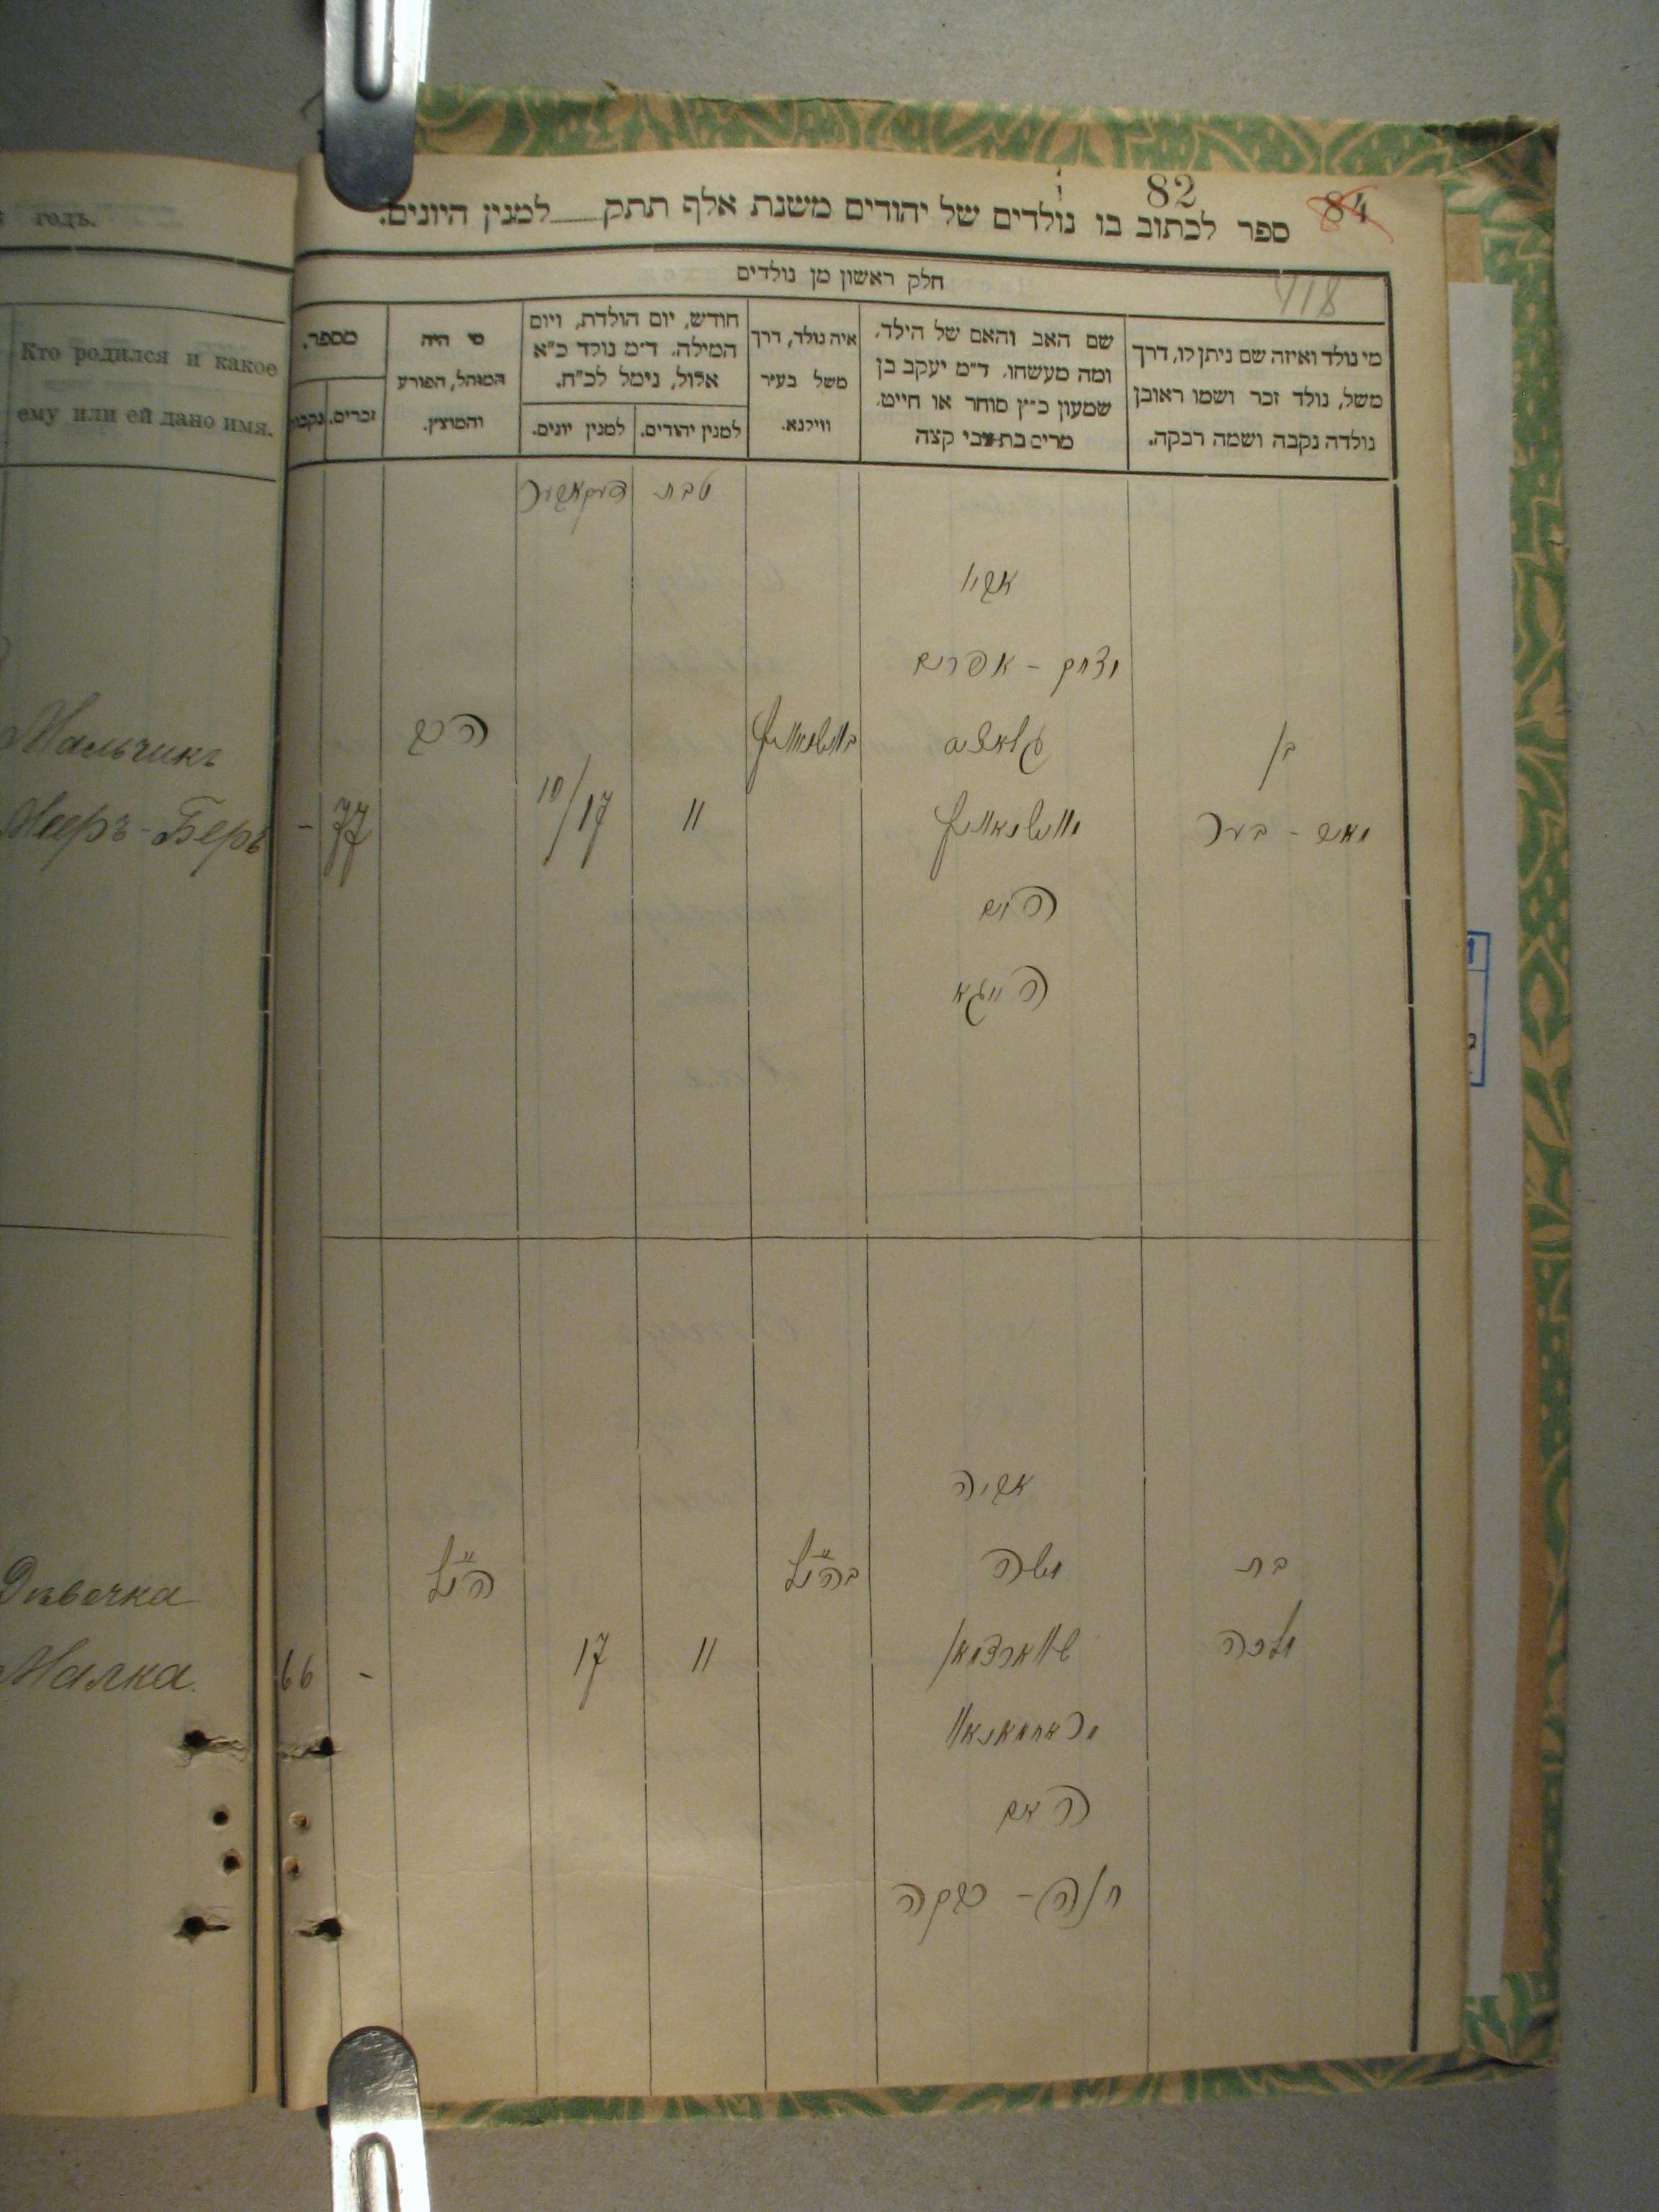 годъ.
Кто родился и какое
ему или ей дано имя.
Мальчикъ
Мееръ-Беръ
Дѣвочка
Малка.
82
84
ספר לכתוב בו נולדים של יהודים משנת אלף תתק למנין היונים.
118
חלק ראשון מן נולדים
מי נולד ואיזה שם ניתן לו, דרך
משל, נולד זכר ושמו ראובן
נולדה נקבה ושמה רבקה.
שם האב והאם של הילד,
ומה מעשהו, ד״מ יעקב בן
שמעון כ״ץ סוחר או חייט,
מרים בת צבי קצה
איה נולד, דרך
משל בעיר
ווילנא.
חודש, יום הולדת, ויום
המילה, ד״מ נולד כ״א
אלול, נימל לכ״ח.
למנין יהודים.
למנין יונים.
מי היה
המוהל, הפורע
והמוצץ.
מספר.
זכרים.
נקבות
טבת
אביו
יצחק - אפרים
בן
מאיר - בער
11
10/17
77
-
האם
אביה
בת
מלכה
משה
בה״נל
11
17
ה״נל
-
66
שווארצמאן
האם
חנה - רבקה